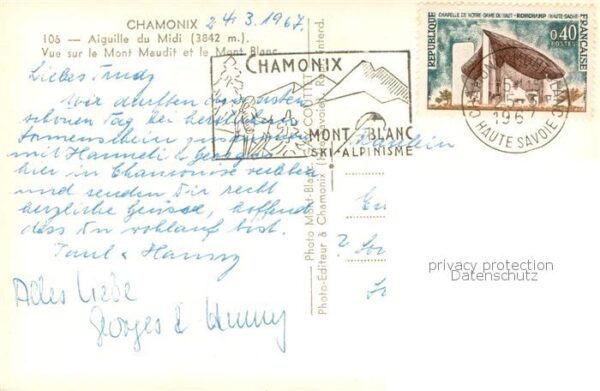 CHAMONIX 24.3.1967.
105 — Aiguille du Midi (3842 m.)
Vue sur le Mont Maudit et le Mont Blanc
Liebes Trudy
Wir durften den ersten
schönen Tag bei herrlichem
Sonnenschein zusammen
mit Hanneli & Georges
hier in Chamonix verleben
und senden Dir recht
herzliche Grüsse, hoffend
dass Du wohlauf bist.
Paul & Hanny
Alles Liebe
Georges &
CHAMONIX
MONT BLANC
SKI-ALPINISME
Photo-Editeur à Chamonix
REPUBLIQUE FRANÇAISE
CHAPELLE DE NOTRE-DAME DU HAUT - RONCHAMP (HAUTE-SAONE)
0,40
POSTES
1967
HAUTE SAVOIE
Fräulein
privacy protection
Datenschutz